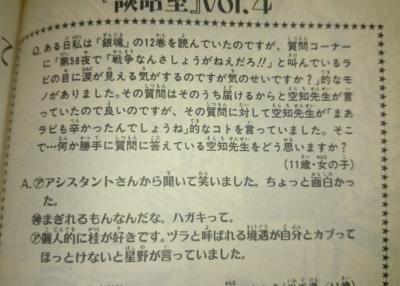 『談話室』vol.4
Q.ある日私は「銀魂」の12巻を読んでいたのですが、質問コーナー
に「第58夜で「戦争なんさしょうがねえだろ!!」と叫んでいるラ
ビの目に涙が見える気がするのですが気のせいですか?」的なモ
ノがありました。その質問はそのうち届けるからと空知先生が言
っていたので良いのですが、その質問に対して空知先生が「まあ
ラビも辛かったんでしょうね」的なコトを言っていました。そこ
で…何か勝手に質問に答えている空知先生をどう思いますか?
(11歳・女の子)
A.㋐アシスタントさんから聞いて笑いました。ちょっと面白かっ
た。
まぎれるもんなんだな。ハガキって。
㋐個人的に桂が好きです。ヅラと呼ばれる境遇が自分とカブって
ほっとけないと星野が言っていました。